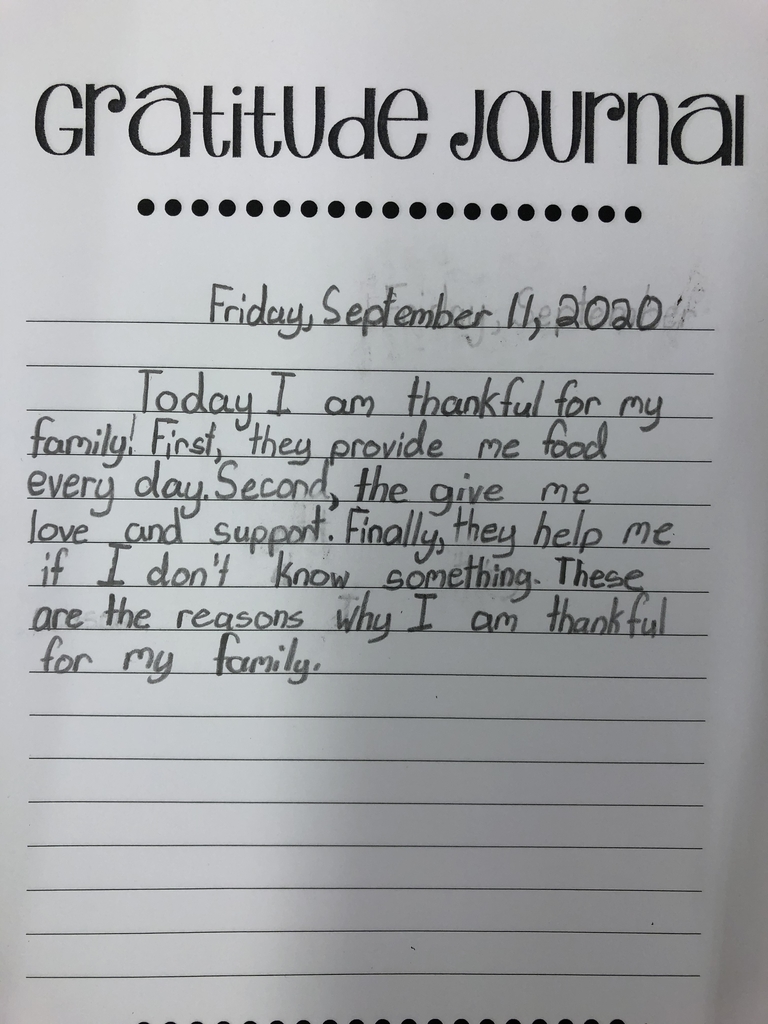 Gratitude Journal
Friday, September 11, 2020
Today I am thankful for my
family! First, they provide me food
every day. Second, the give me
love and support. Finally, they help me
if I don't know something. These
are the reasons why I am thankful
for my family.